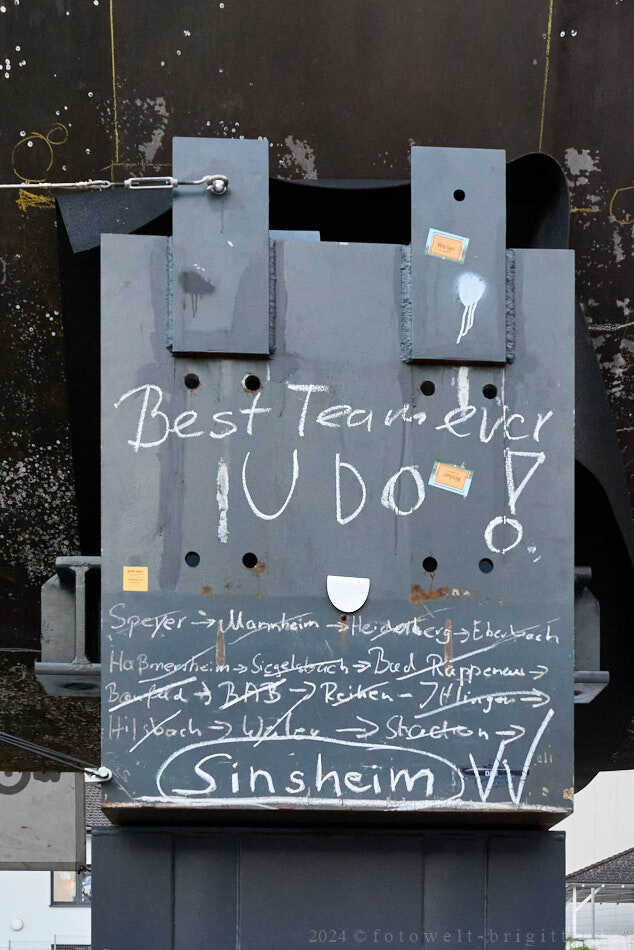 Best Team ever
IUDO!
Speyer → Mannheim → Heidelberg → Eberbach
Haßmersheim → Siegelsbach → Bad Rappenau →
→ BAB → Reihen - Ittlingen →
Hilsbach → Weiler → →
Sinsheim
2024 © fotowelt-brigitt